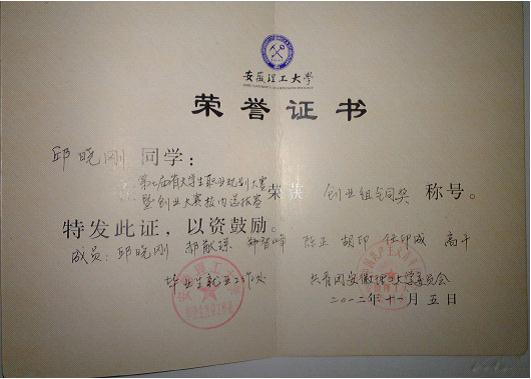 安徽理工大学
荣誉证书
邱晓刚 同学：
第七届省大学生职业规划大赛
暨创业大赛校内选拔赛 荣获 创业组铜奖 称号。
特发此证，以资鼓励。
成员：邱晓刚 郝敬琛 郑智峰 陈正 胡印 任印成 高斗
毕业生就业工作处 共青团安徽理工大学委员会
二〇一二年十一月五日